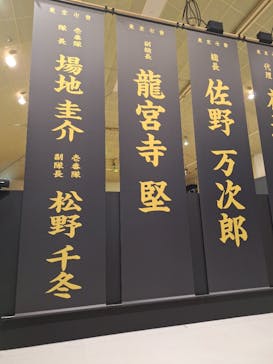 代理
東京卍會
総長
佐野 万次郎
東京卍會
副総長
龍宮寺 堅
東京卍會
壱番隊
隊長
場地 圭介
壱番隊
副隊長
松野 千冬